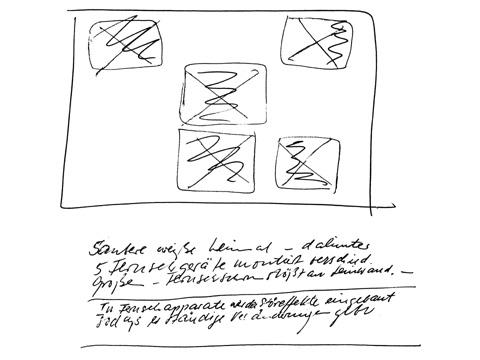 Saubere weiße Leinwand – dahinter
5 Fernsehgeräte montiert verschied.
Größe – Fernsehschirm stößt an Leinwand. –
In Fernsehapparate werden Störeffekte eingebaut
sodass es ständige Veränderungen gibt